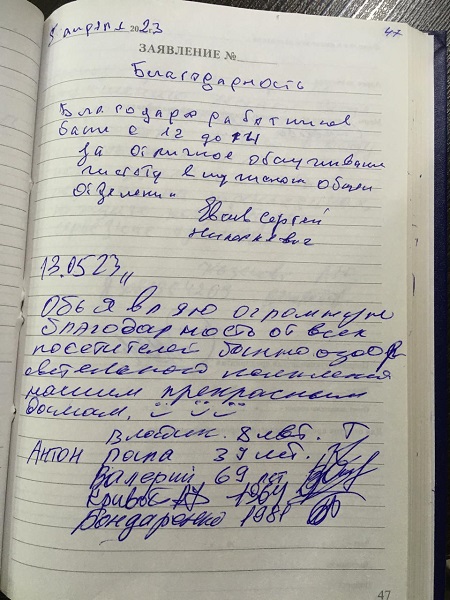 апрел 2023 г. 47
ЗАЯВЛЕНИЕ №
Благодарность
Благодарю работников
бани с 12 до 14
За отличное обслуживание
чистоту в мужском общем
отделении
Сергей
Николаевич
13.05.23
Объявляю огромную
благодарность от всех
посетителей банно оздор
овительного комплекса
нашим прекрасным
дамам.
Владик. 8 лет. Т
Антон папа 37 лет.
Валерий 69 лет
1964
Бондаренко 1981
47